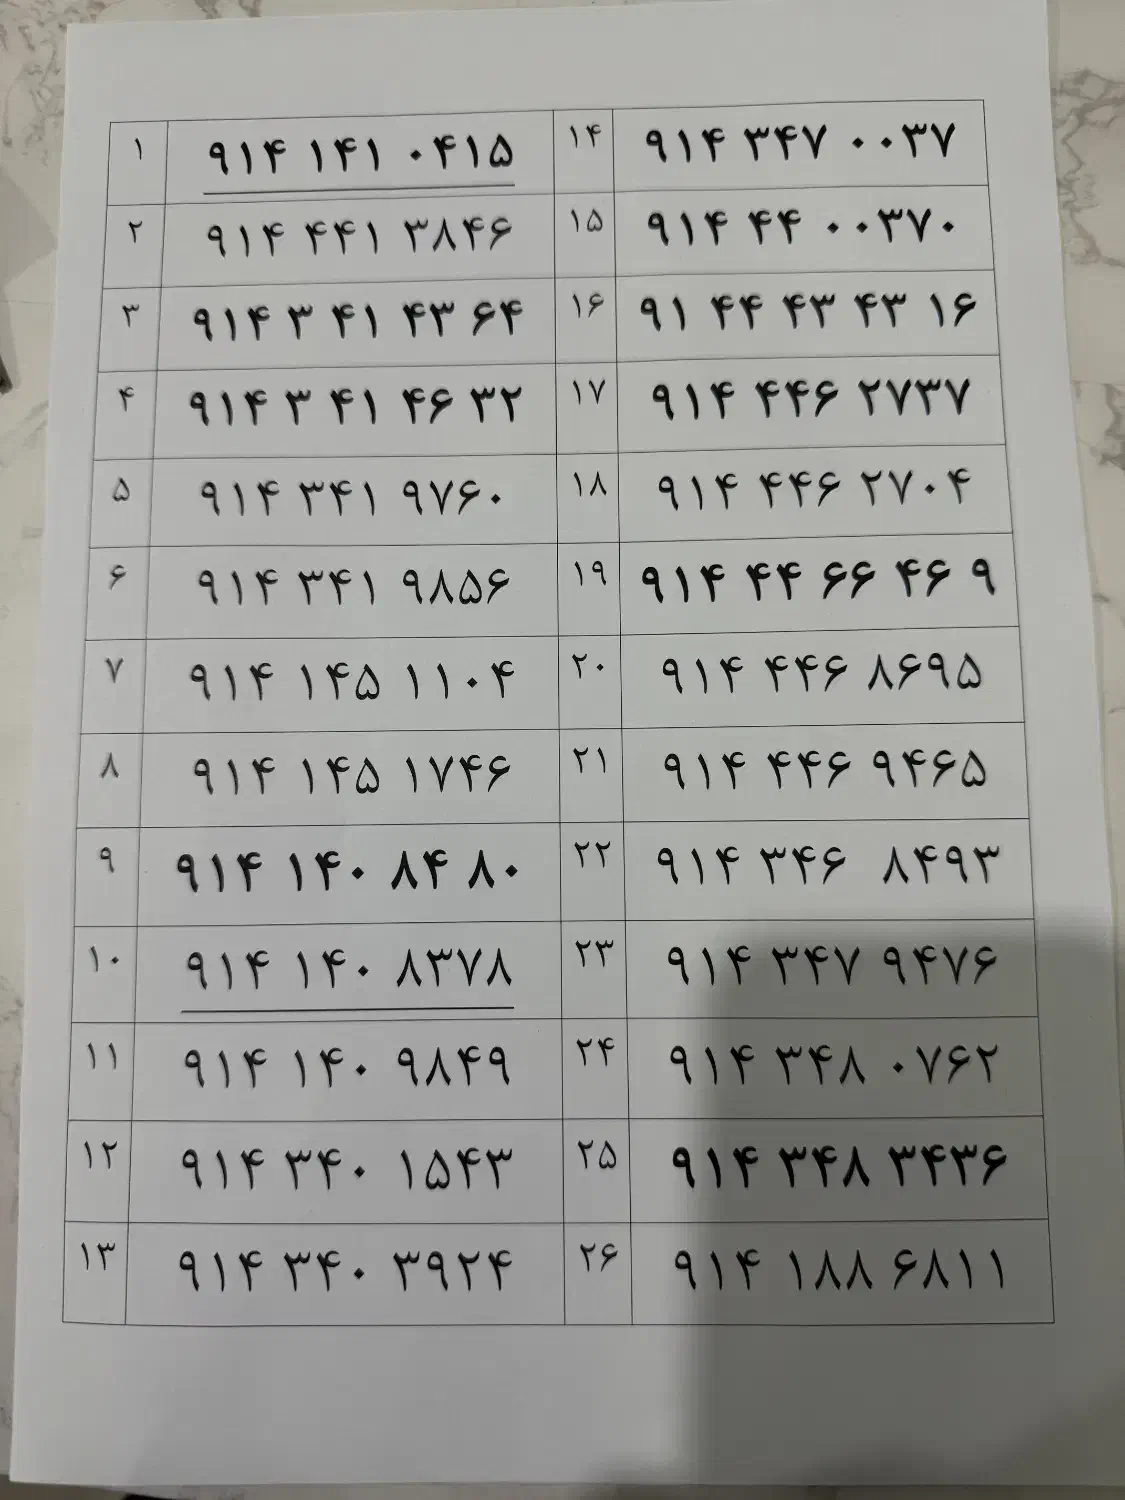 ۱ ۹۱۴ ۱۴۱ ۰۴۱۵
۲ ۹۱۴ ۴۴۱ ۳۸۴۶
۳ ۹۱۴ ۳ ۴۱ ۴۳ ۶۴
۴ ۹۱۴ ۳ ۴۱ ۴۶ ۳۲
۵ ۹۱۴ ۳۴۱ ۹۷۶۰
۶ ۹۱۴ ۳۴۱ ۹۸۵۶
۷ ۹۱۴ ۱۴۵ ۱۱۰۴
۸ ۹۱۴ ۱۴۵ ۱۷۴۶
۹ ۹۱۴ ۱۴۰ ۸۴ ۸۰
۱۰ ۹۱۴ ۱۴۰ ۸۳۷۸
۱۱ ۹۱۴ ۱۴۰ ۹۸۴۹
۱۲ ۹۱۴ ۳۴۰ ۱۵۴۳
۱۳ ۹۱۴ ۳۴۰ ۳۹۲۴
۱۴ ۹۱۴ ۳۴۷ ۰۰۳۷
۱۵ ۹۱۴ ۴۴ ۰۰۳۷۰
۱۶ ۹۱ ۴۴ ۴۳ ۴۳ ۱۶
۱۷ ۹۱۴ ۴۴۶ ۲۷۳۷
۱۸ ۹۱۴ ۴۴۶ ۲۷۰۴
۱۹ ۹۱۴ ۴۴ ۶۶ ۴۶ ۹
۲۰ ۹۱۴ ۴۴۶ ۸۶۹۵
۲۱ ۹۱۴ ۴۴۶ ۹۴۶۵
۲۲ ۹۱۴ ۳۴۶ ۸۴۹۳
۲۳ ۹۱۴ ۳۴۷ ۹۴۷۶
۲۴ ۹۱۴ ۳۴۸ ۰۷۶۲
۲۵ ۹۱۴ ۳۴۸ ۳۴۳۶
۲۶ ۹۱۴ ۱۸۸ ۶۸۱۱